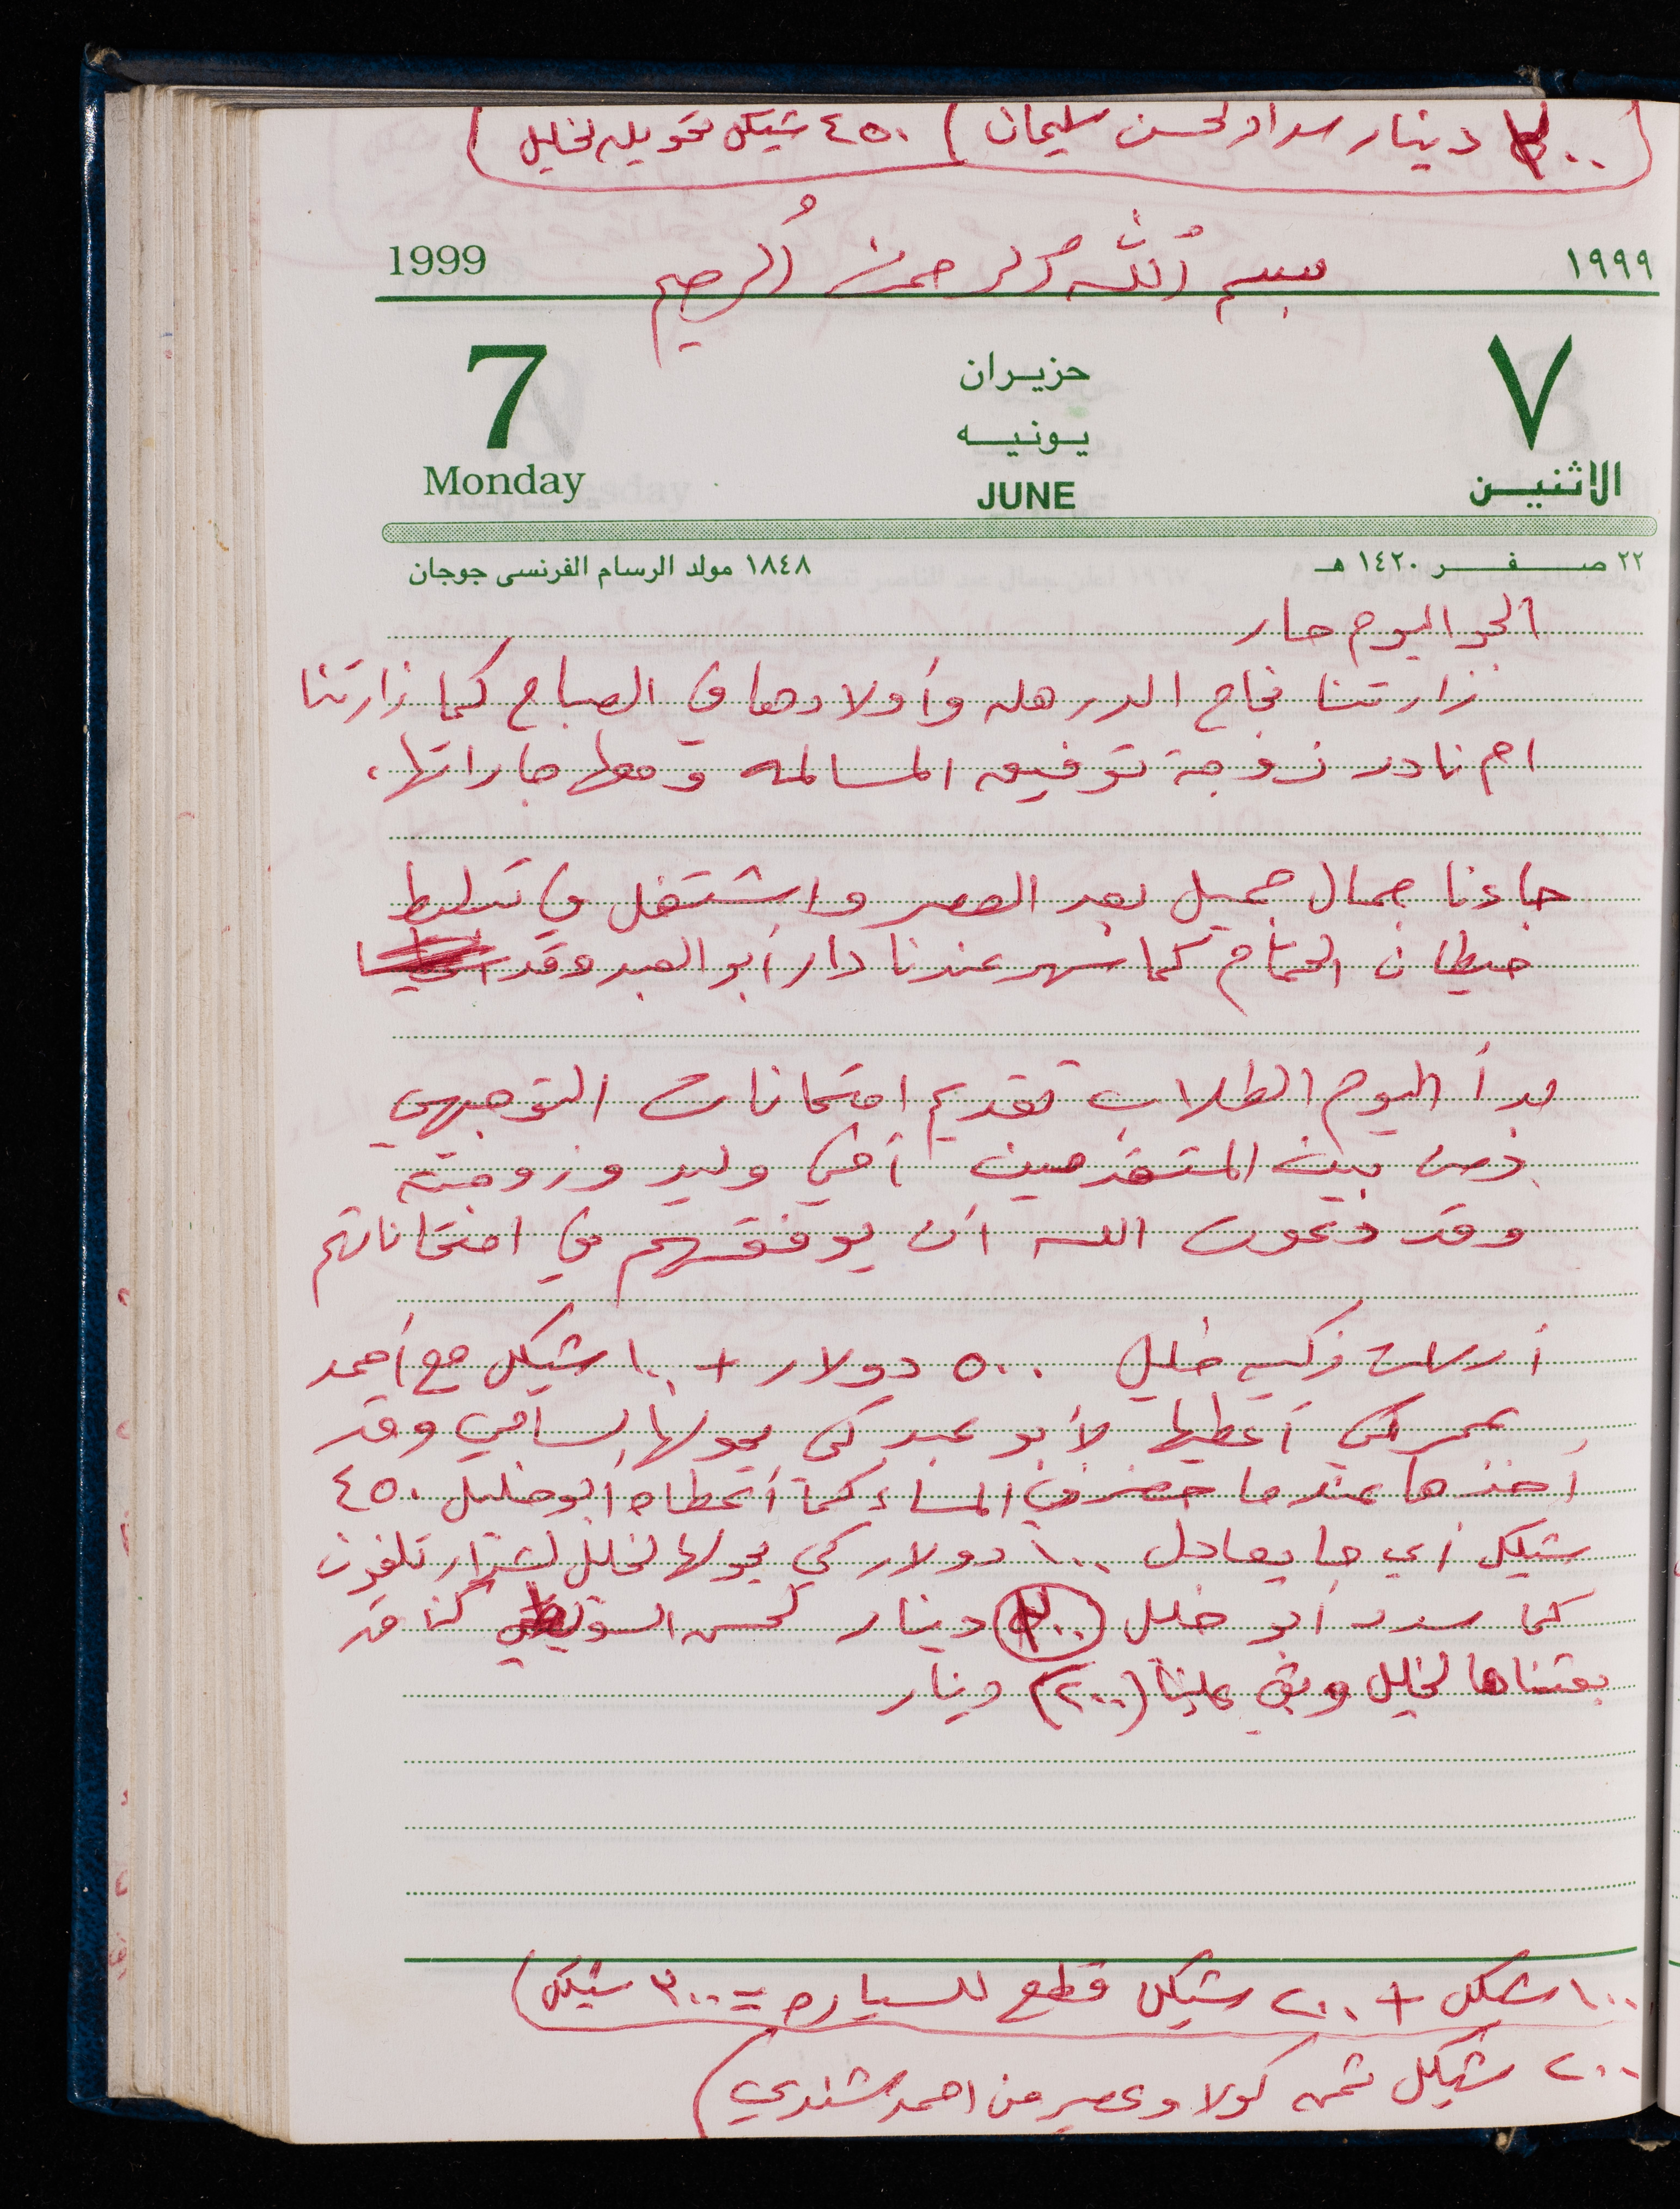 ٣٠٠ دينار سداد لحسن سليمان) ٤٥٠ شيكل تحويله لخليل)
بسم الله الرحمن الرحيم
1999 ١٩٩٩
7 حزيران ٧
يونيه
Monday JUNE الاثنين
٢٢ صفر ١٤٢٠ هـ ١٨٤٨ مولد الرسام الفرنسى جوجان
الجو اليوم حار
زارتنا نجاح الدر هله وأولادها في الصباح كما زارتنا
ام نادر زوجة توفيق المسالمه ومعها جاراتها.
جاءنا جمال جميل بعد العصر واشتغل في تبليط
حيطان الحمام كما سهر عندنا دار أبو العبد وقد
بدأ اليوم الطلاب تقديم امتحانات التوجيهي
ومن بين المتقدمين أخي وليد وزوجته
وقد دعوت الله أن يوفقهم في امتحاناتهم
أرسلت زكيه خليل ٥٠٠ دولار + ١٠٠ شيكل مع أحمد
عمر لكي أعطيها لأبو عبد كي يحولها لسامي وقد
أخذها عندما حضر في المساء كما أعطاه أبو خليل ٤٥٠
شيكل أي ما يعادل ١٠٠ دولار كي يحولها لخليل لشراء تلفون
كما سدد أبو خليل ٣٠٠ دينار لحسن كنا قد
بعتناها لخليل وبقي علينا (٢٠٠) دينار
١٠٠ شيكل + ٢٠٠ شيكل قطع للسياره = ٣٠٠ شيكل)
٢٠٠ شيكل ثمن كولا وعصير من احمد شنادري)